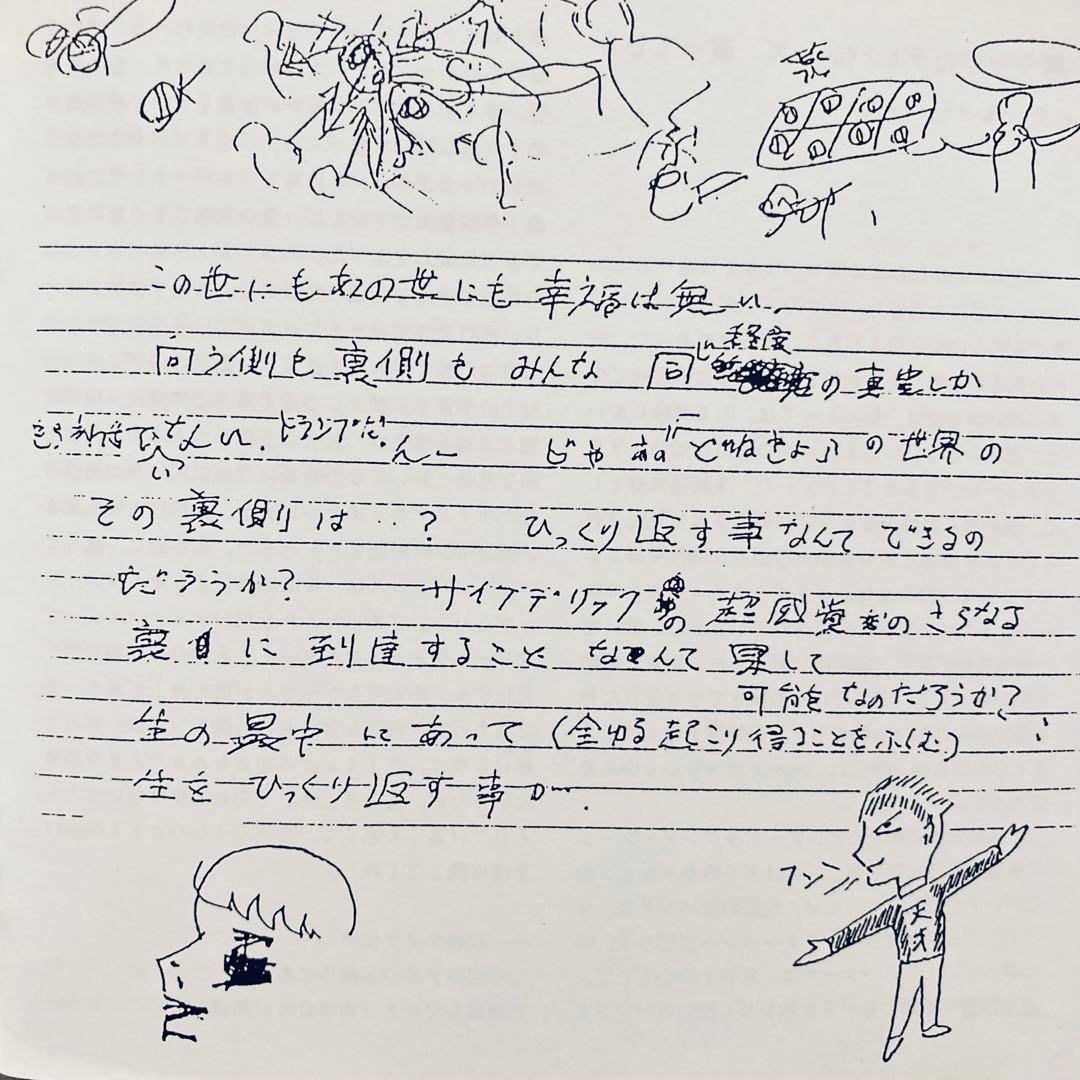 楽
この世にもあの世にも幸える は無い。
向う側も裏側もみんな同じ程度の真実しか
でしかない。トランプだ んー じゃあ の世界の
その裏側は‥? ひっくり返す事なんてできるの
だろうか? サイケデリックの超感覚のさらなる
裏目に到達することなんて果して
可能なのだろうか?
生の最中にあって(全ゆる起こり得ることをふくむ)
生をひっくり返す事が…
フンフン